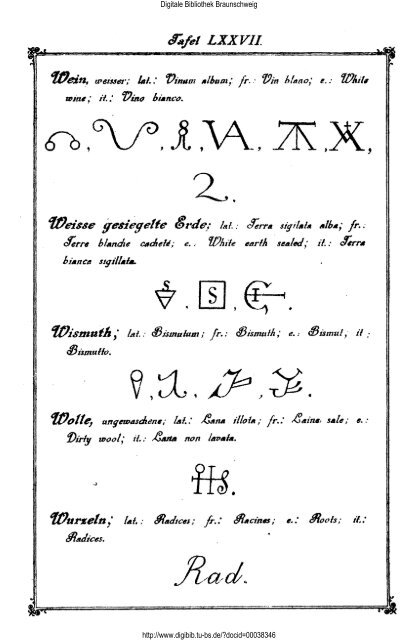 Digitale Bibliothek Braunschweig
Tafel LXXVII.
Wein, weisser; lat.: Vinum album; fr.: Vin blanc; e.: White
wine; it.: Vino bianco.
2.
Weisse gesiegelte Erde; lat.: Terra sigilata alba; fr.:
Terre blandie cacheté; e.: White earth sealed; it.: Terra
bianca sigillata.
S S
Wismuth; lat.: Bismutum; fr.: Bismuth; e.: Bismut, it:
Bismutto.
Wolle, ungewaschene; lat.: Lana illota; fr.: Laine sale; e.:
Dirty wool; it.: Lana non lavata.
Wurzeln; lat.: Radices; fr.: Racines; e.: Roots; it.:
Radices.
Rad.
http://www.digibib.tu-bs.de/?docid=00038346